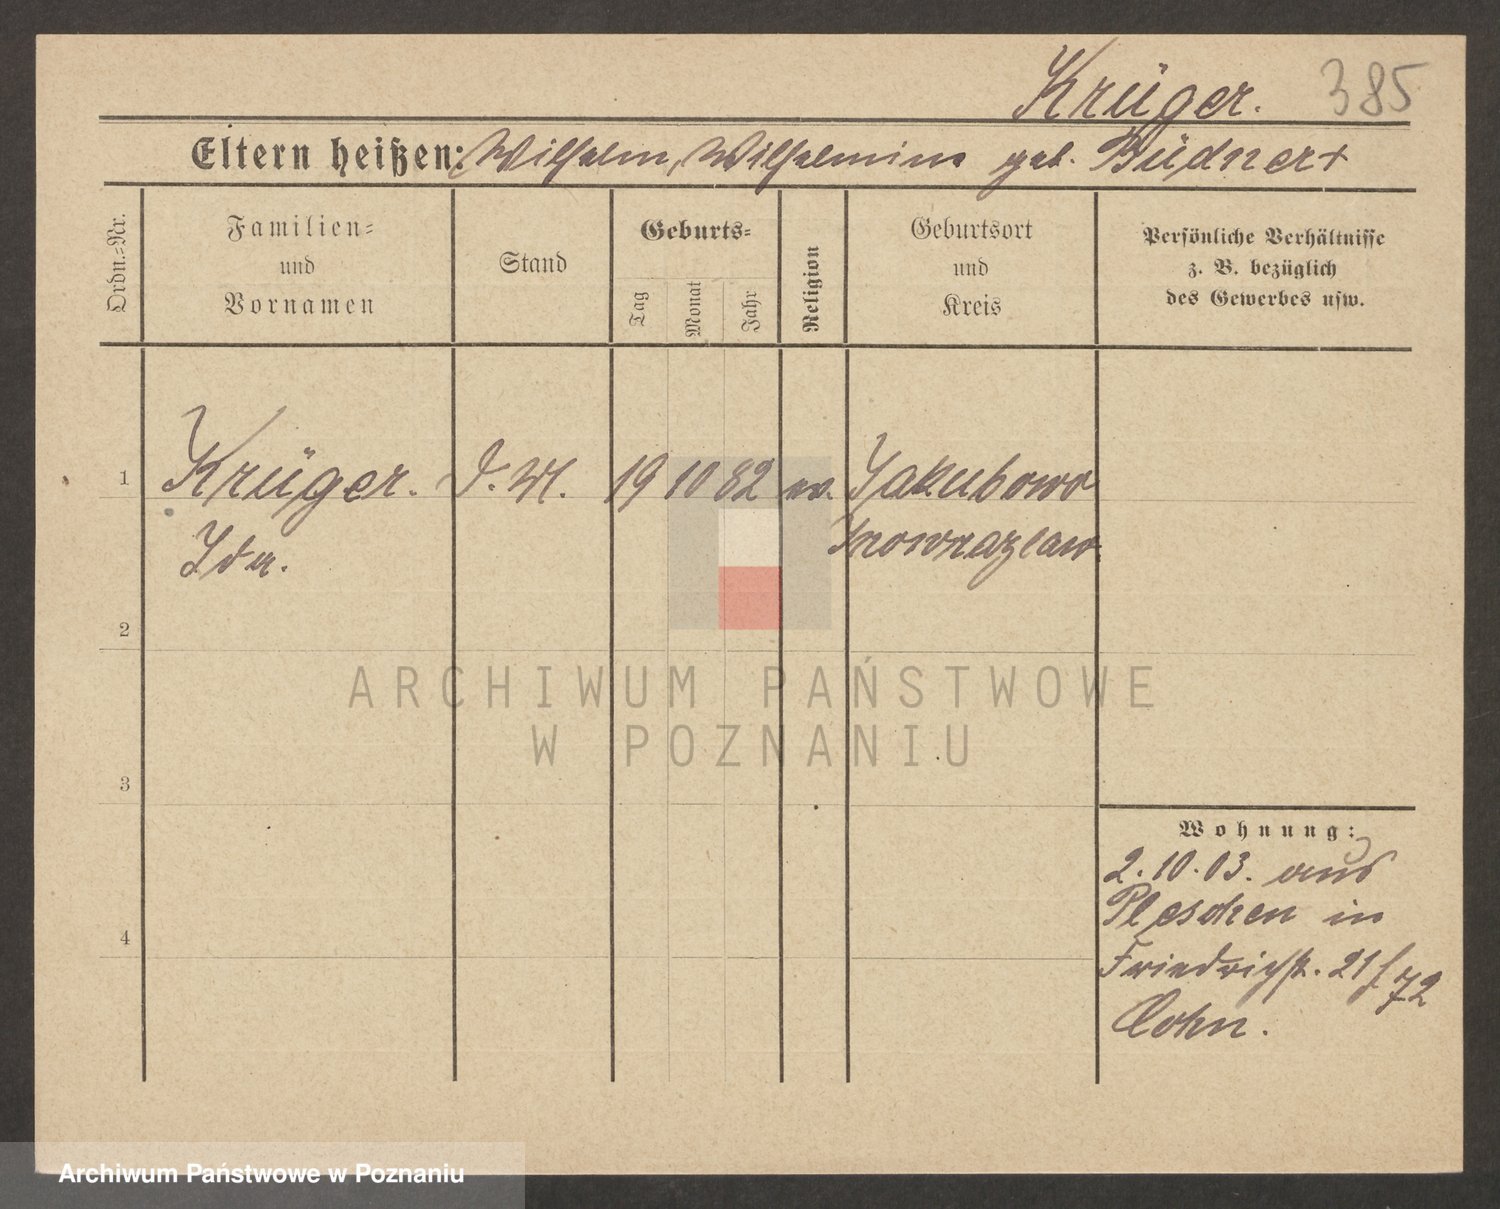 Krüger. 385
Eltern heißen: Wilhelm, Wilhelmine geb. Büdner +
Ordn.-Nr.
Familien-
und
Vornamen
Stand
Geburts-
Tag
Monat
Jahr
Religion
Geburtsort
und
Kreis
Persönliche Verhältnisse
z. B. bezüglich
des Gewerbes usw.
1 Krüger. d. M. 19 10 82 ev. Jakubowo
Ida. Inowrazlaw.
2
ARCHIWUM PAŃSTWOWE
W POZNANIU
3
Wohnung:
2.10.03. aus
Pleschen in
4
Friedrichst. 21 72
Cohn.
Archiwum Państwowe w Poznaniu